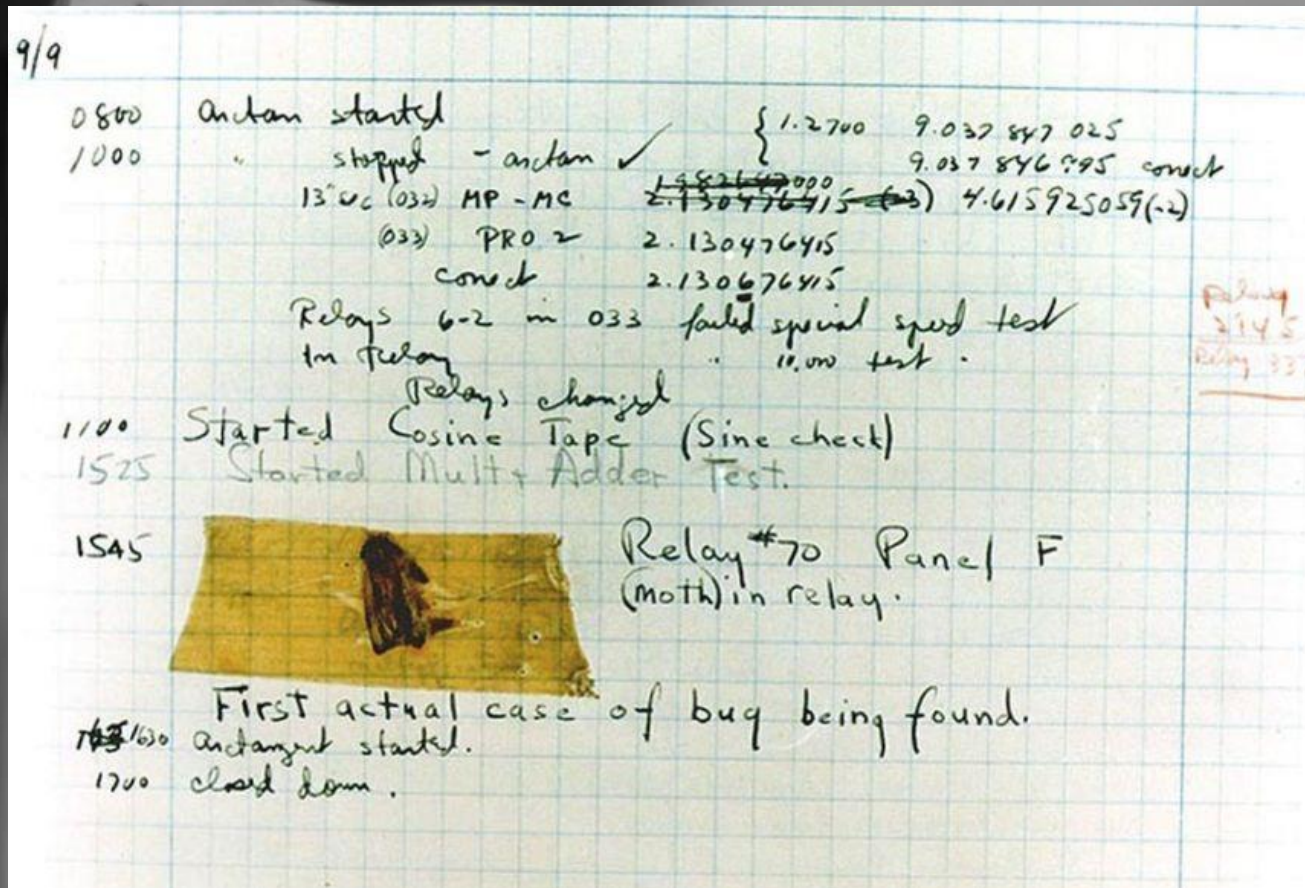 9/9
0800 arctan started { 1.2700 9.037 847 025
1000 " stopped - arctan ✓ 9.037 846 995 correct
13"uc (032) MP - MC 2.130476415 (-3) 4.615925059(-2)
(033) PRO 2 2.130476415
correct 2.130676415
Relays 6-2 in 033 failed special speed test
In Relay " 10,000 test .
Relays changed
1100 Started Cosine Tape (Sine check)
1525 Started Mult + Adder Test.
1545 Relay #70 Panel F
(moth) in relay.
First actual case of bug being found.
1630 arctangent started.
1700 closed down.
Relay
Relay 337